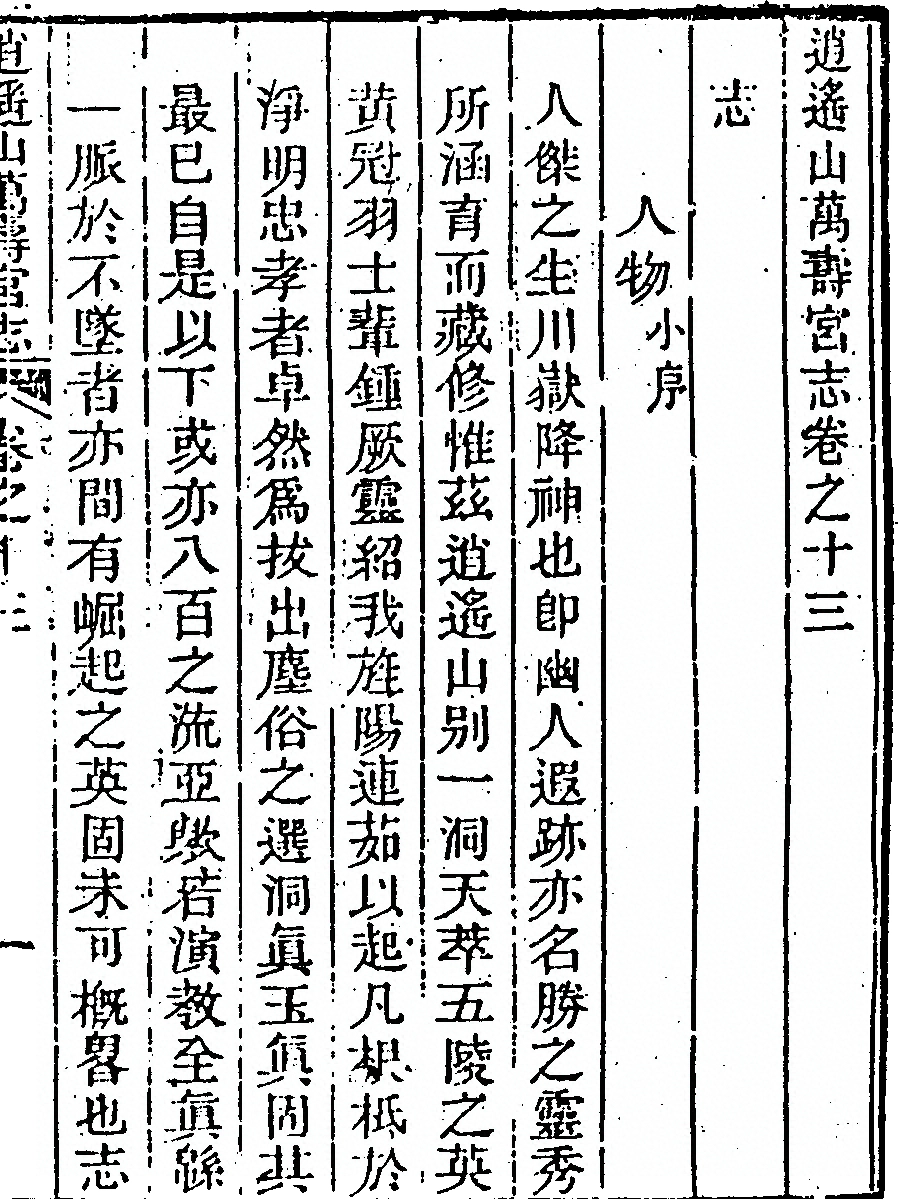 逍遙山萬壽宮志卷之十三
志
人物小序
人傑之生川嶽降神也卽幽人遐跡亦名勝之靈秀
所涵育而藏修惟茲逍遙山別一洞天萃五陵之英
黃冠羽士輩鍾厥靈紹我旌陽連茹以起凡根柢於
淨明忠孝者卓然爲拔出塵俗之選洞眞玉眞固其
最巳自是以下或亦八百之流亞歟若演教全眞緜
一脈於不墜者亦間有崛起之英固未可槪畧也志
逍遙山萬壽宮志 卷之十三 一